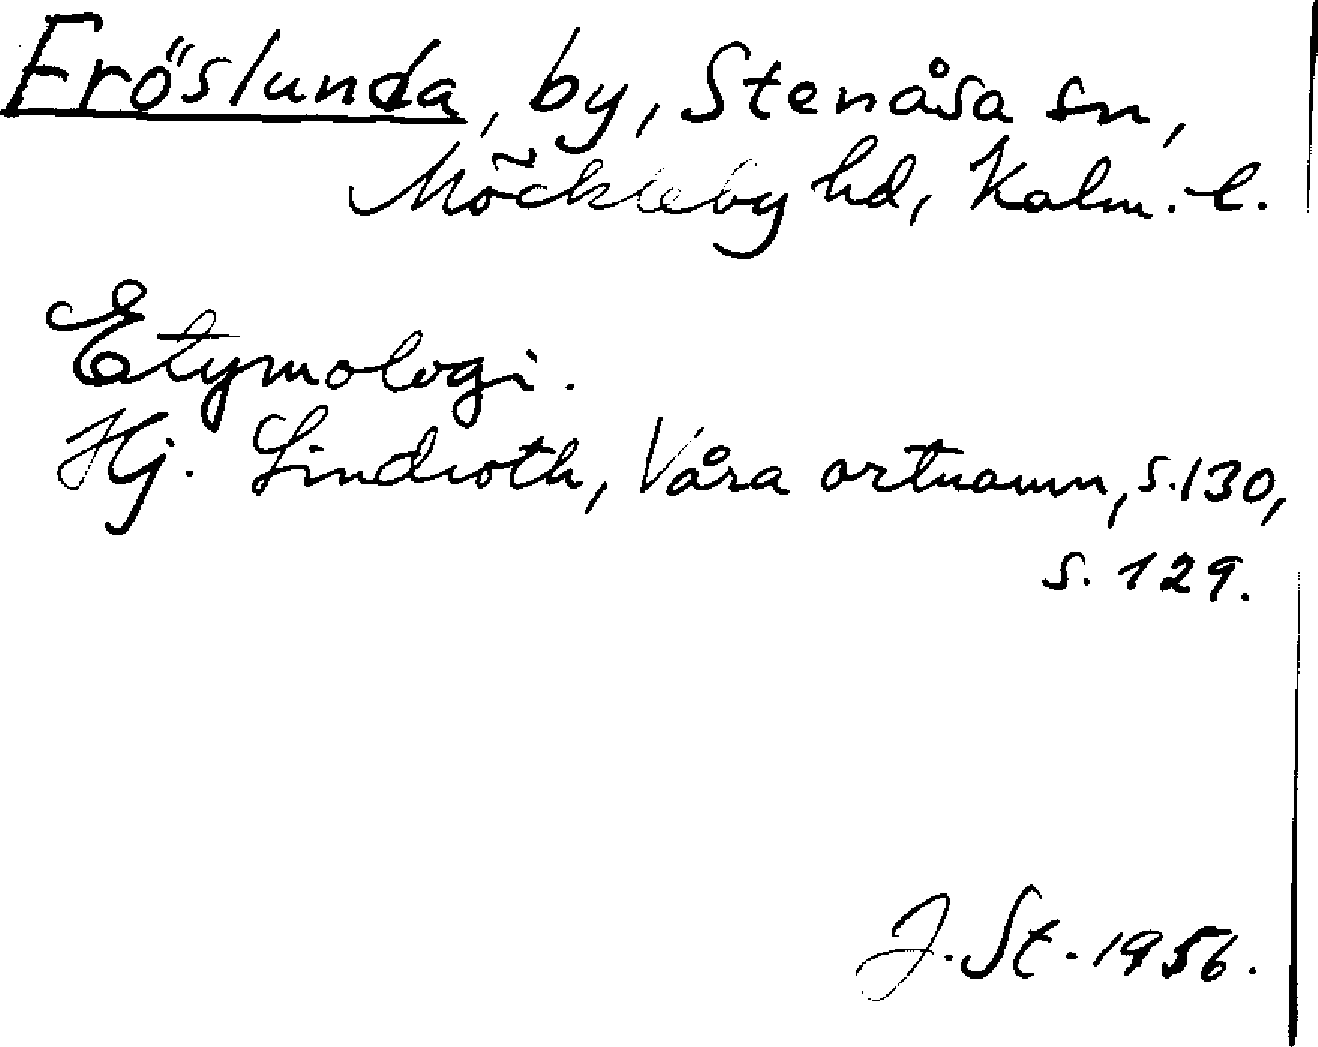 Fröslunda, by, Stenåsa sn,
Möckleby hd, Kalm. l.
Etymologi.
Hj. Lindroth, Våra ortnamn, s. 130,
s. 129.
J. St. 1956.